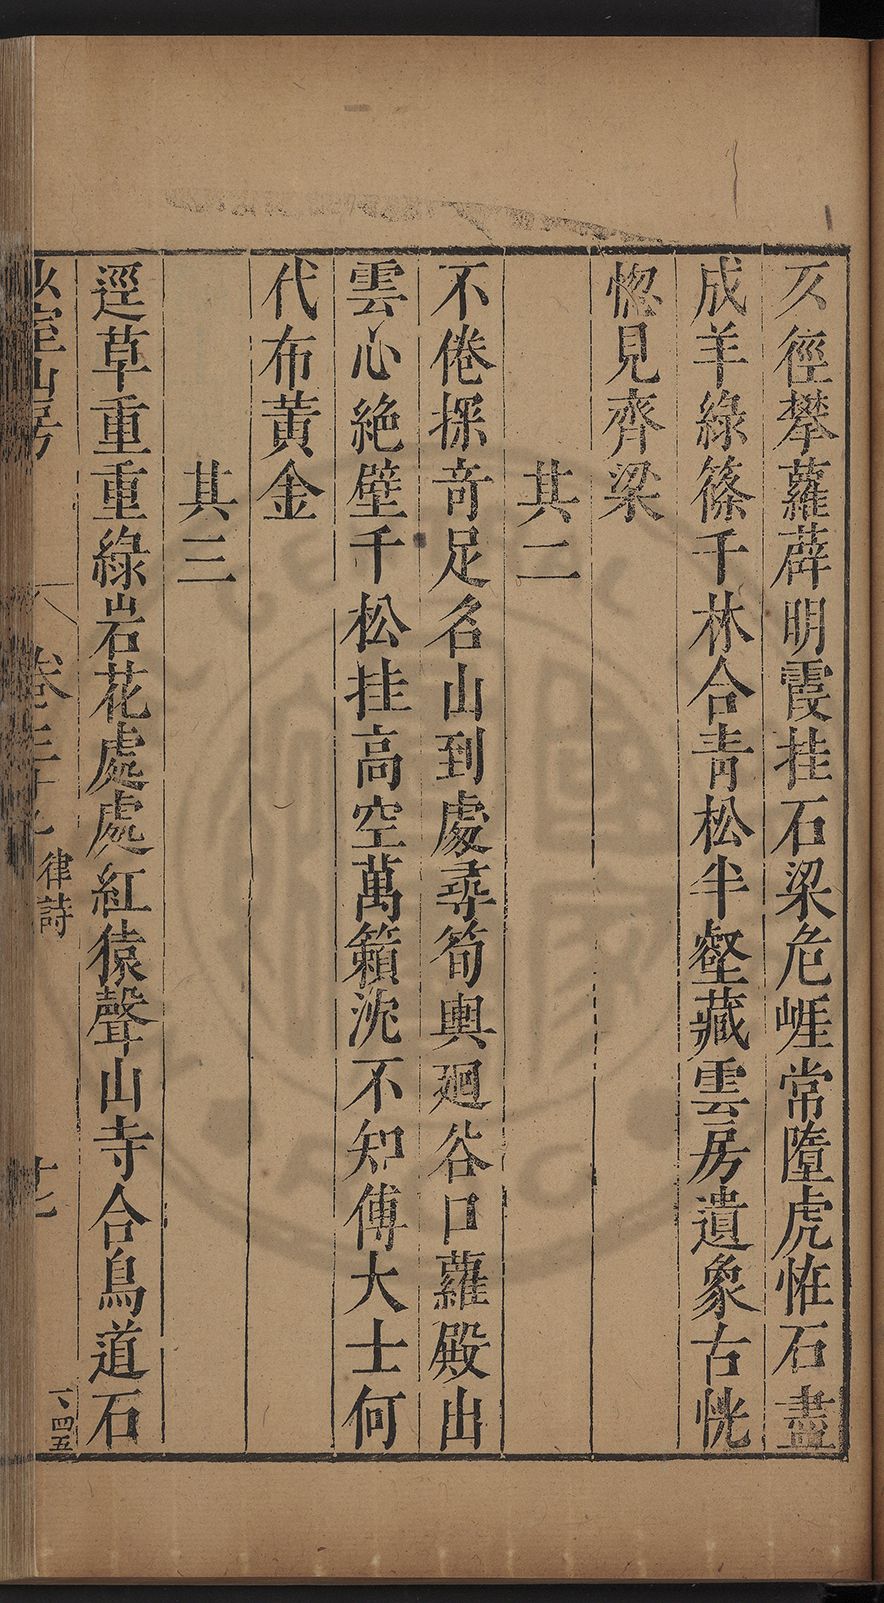 仄徑攀蘿薜明霞挂石梁危崕常墮虎恠石盡
成羊綠篠千林合青松半壑藏雲房遺象古恍
惚見齊梁
其二
不倦探奇足名山到處尋筍輿廻谷口蘿殿出
雲心絶壁千松挂高空萬籟沈不知傅大士何
代布黄金
其三
逕草重重綠岩花處處紅猿聲山寺合鳥道石
室山房
卷三十
律詩
十七
一、四五